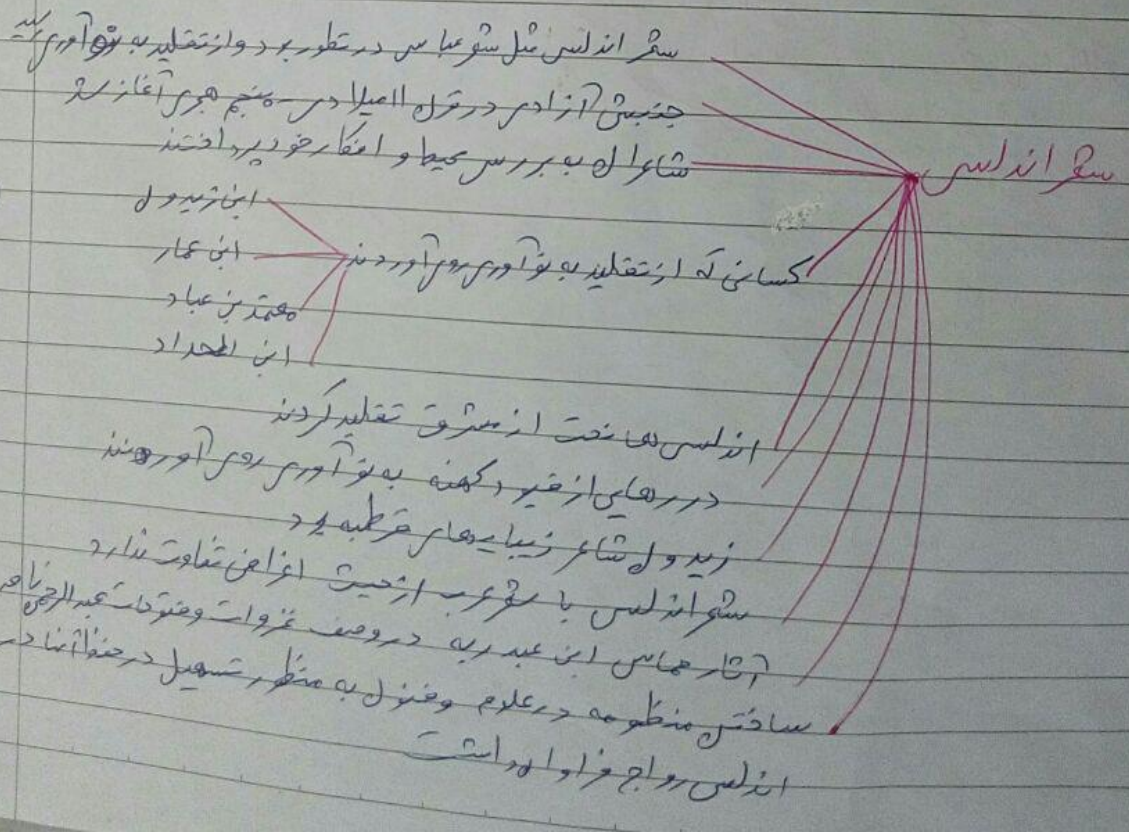 شعر اندلس
شعر اندلس مثل شعر عباسی در تطور بود و از تقلید به نوآوری رسید
جنبش آزادی در قرن ۱۱ میلادی - پنجم هجری آغاز شد
شاعران به بررسی محیط و افکار خود پرداختند
کسانی که از تقلید به نوآوری روی آوردند
ابن زیدون
ابن عمار
معتمد بن عباد
ابن الحداد
اندلسی ها نخست از مشرق تقلید کردند
در رهایی از قیود کهنه به نوآوری روی آوردند
زیدون شاعر زیبایی‌های قرطبه بود
شعر اندلس با شعر عرب از حیث اغراض تفاوت ندارد
آثار حماسی ابن عبد ربه در وصف غزوات و فتوحات عبدالرحمن ناصر
ساختن منظومه در علوم و فنون به منظور تسهیل در حفظ آنها در
اندلس رواج فراوان داشت